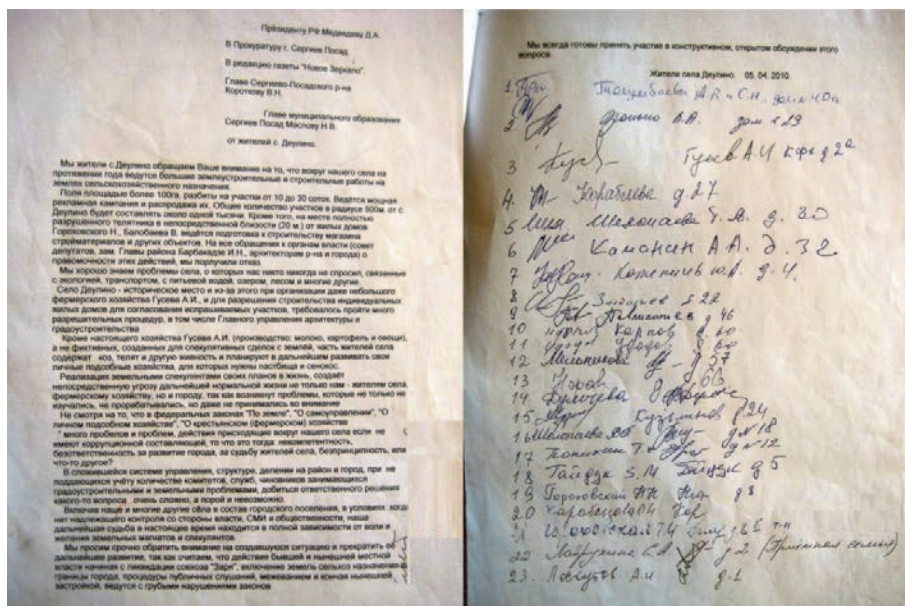 Президенту РФ Медведеву Д.А.
В Прокуратуру г. Сергиев Посад
В редакцию газеты "Новое Зеркало".
Главе Сергиево-Посадского р-на
Короткову В.Н.
Главе муниципального образования
Сергиев Посад Маслову Н.В.
от жителей с. Деулино.
Мы жители с Деулино обращаем Ваше внимание на то, что вокруг нашего села на
протяжении года ведутся большие землеустроительные и строительные работы на
землях сельскохозяйственного назначения.
Поля площадью более 100га, разбиты на участки от 10 до 30 соток. Ведётся мощная
рекламная кампания и распродажа их. Общее количество участков в радиусе 500м. от с.
Деулино будет составлять около одной тысячи. Кроме того, на месте полностью
разрушенного телятника в непосредственной близости (20 м.) от жилых домов
Гороховского Н., Балобаева В. ведётся подготовка к строительству магазина
стройматериалов и других объектов. На все обращения к органам власти (совет
депутатов, зам. Главы района Барбакадзе И.Н., архитекторам р-на и города) о
правомочности этих действий, мы получили отказ.
Мы хорошо знаем проблемы села, о которых нас никто никогда не спросил, связанные
с экологией, транспортом, с питьевой водой, озером, лесом и многие другие.
Село Деулино - историческое место и из-за этого при организации даже небольшого
фермерского хозяйства Гусева А.И., и для разрешения строительства индивидуальных
жилых домов для согласования испрашиваемых участков, требовалось пройти много
разрешительных процедур, в том числе Главного управления архитектуры и
градоустроительства
Кроме настоящего хозяйства Гусева А.И. (производство: молоко, картофель и овощи),
а не фиктивных, созданных для спекулятивных сделок с землёй, часть жителей села
содержат коз, телят и другую живность и планируют в дальнейшем развивать свои
личные подсобные хозяйства, для которых нужны пастбища и сенокос.
Реализация земельными спекулянтами своих планов в жизнь, создаёт
непосредственную угрозу дальнейшей нормальной жизни не только нам - жителям села,
фермерскому хозяйству, но и городу, так как возникнут проблемы, которые не только не
изучались, не прорабатывались, но даже не принимались во внимание
Не смотря на то, что в федеральных законах "По земле", "О самоуправлении", "О
личном подсобном хозяйстве", "О крестьянском (фермерском) хозяйстве
" много пробелов и проблем, действия происходящие вокруг нашего села если не
имеют коррупционной составляющей, то что это тогда: некомпетентность,
безответственность за развитие города, за судьбу жителей села, беспринципность, или
что-то другое?
В сложившейся системе управления, структуре, делении на район и город, при не
поддающихся учёту количестве комитетов, служб, чиновников занимающихся
градоустроительными и земельными проблемами, добиться ответственного решения
какого-то вопроса очень сложно, а порой и невозможно.
Включив наше и многие другие сёла в состав городского поселения, в условиях когда
нет надлежащего контроля со стороны власти, СМИ и общественности, наша
дальнейшая судьба в настоящее время находится в полной зависимости от воли и
желания земельных магнатов и спекулянтов.
Мы просим срочно обратить внимание на создавшуюся ситуацию и прекратить её
дальнейшее развитие, так как считаем, что действия бывшей и нынешней местной
власти начиная с ликвидации совхоза "Заря", включение земель сельхоз назначения в
границы города, процедуры публичных слушаний, межеванием и кончая нынешней
застройкой, ведутся с грубыми нарушениями законов
Мы всегда готовы принять участие в конструктивном, открытом обсуждении этого
вопроса.
Жители села Деулино. 05. 04. 2010.
1 А.В. и С.Н. дом №40а
2 А.В. дом №29
3 Гусев А.И д 2а
4. Кораблева д.27
5 д. 30
6 Каманин А А. д. 32
7 д. 4.
8 д 22
9 д 46
10 Карпов д. 60
11 д. 60
12 Мельникова д 57
13
14
15 Кузьминов д 24
16 д № 18
17 д № 12
18 Гайдук д 5
19 д 8
20
22 д 2 (Приёмная семья)
23. Лоскутов А.И д. 1